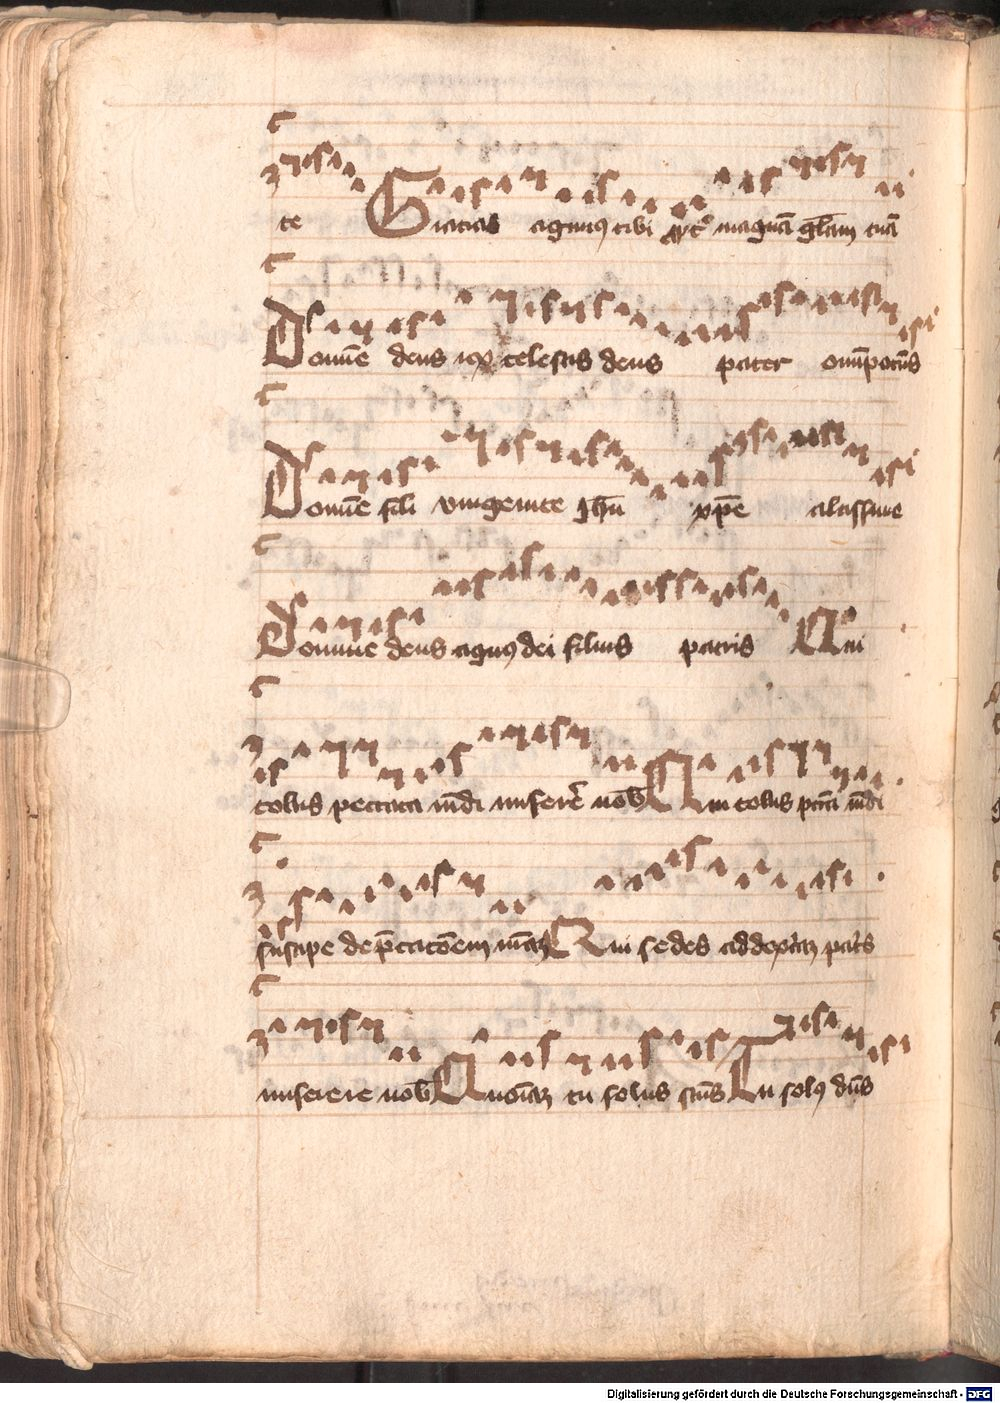 te Gratias agimus tibi ꝓpt̄ magnā gl̄am tuā
Domīe deus rex celestis deus pater omīpotēs
Domīe fili vnigenite ihū xp̄e altissime
Domine deus agnꝰ dei filius patris Qui
tollis peccata mūdi miserē nob̄ Qui tollis pctā mūdi
suscipe dep̄catōem nrām Qui sedes ad dextrā patris
miserere nob̄ Quoniā tu solus scūs Tu solꝰ dūs
Digitalisierung gefördert durch die Deutsche Forschungsgemeinschaft - DFG